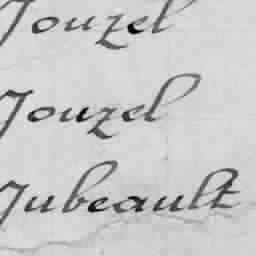 Jouzel
Jouzel
Jubeault